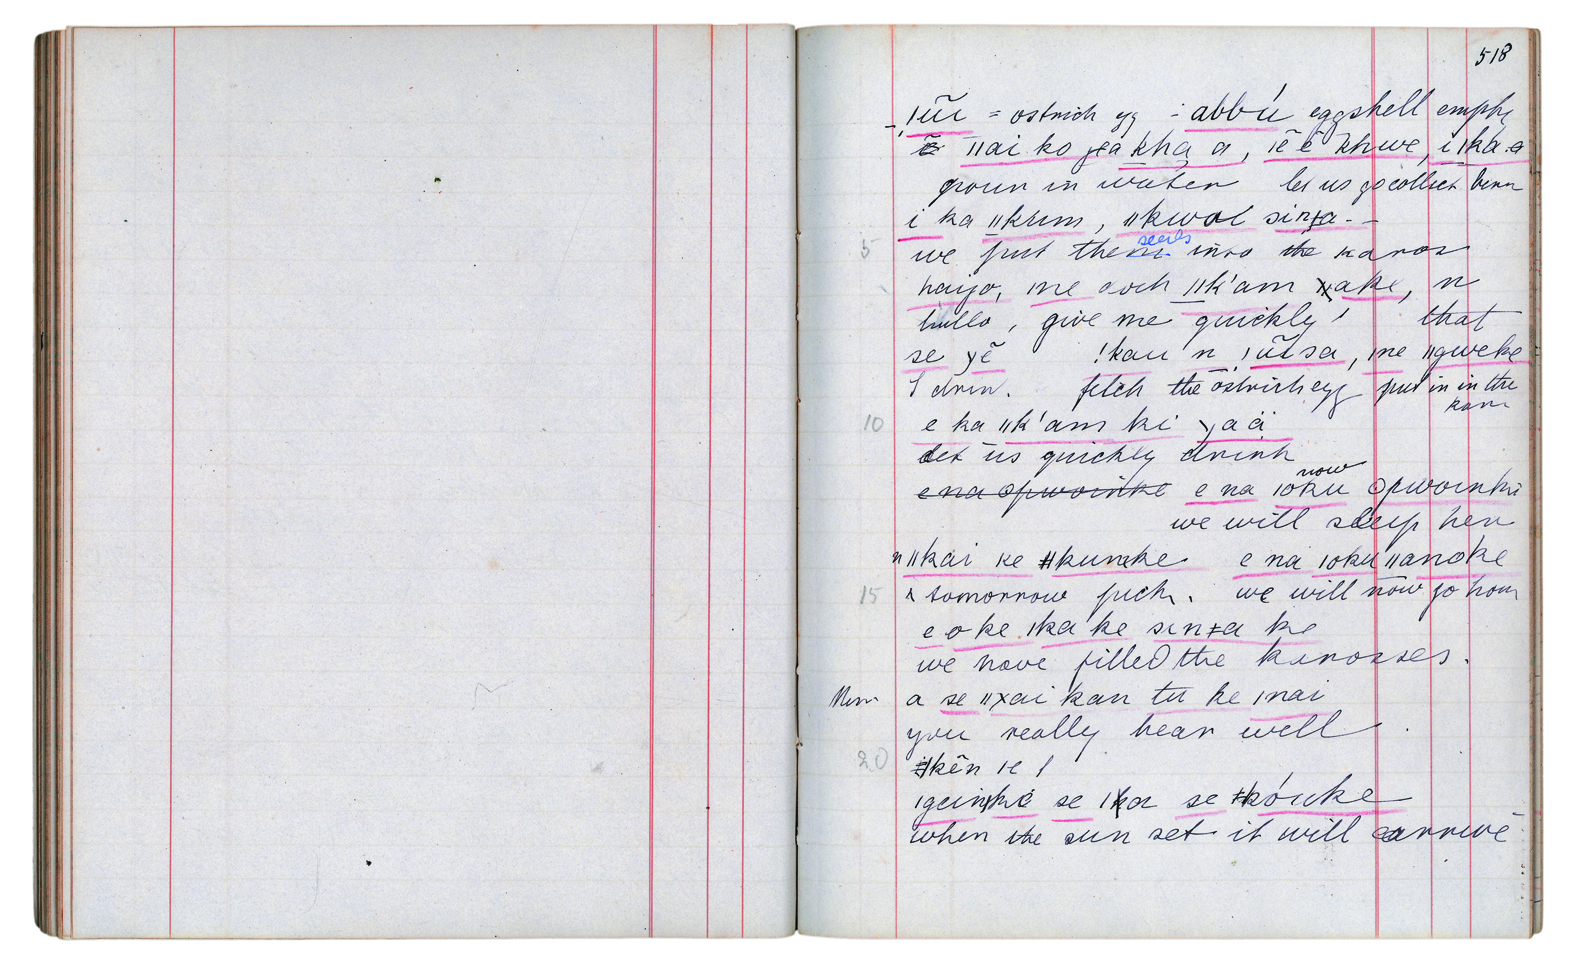 518
ǀũĩ = ostrich egg - abbú eggshell empty
ǁai ko xa kha a, ǀē ē khwe, i ǀka
pour in water let us go collect
i ka ǁkum, ǁkwal sinǂa -
5 we put them seeds into the kaross
haijo, me och ǁk'am xake, n
hullo, give me quickly ! that
se xē !kau n ǀũĩsa, me ǁgweke
I drin. fetch the ostrich egg put in in the
10 e ka ǁk'am ki xaä
let us quickly drink
e na opwoinke e na ǀoku ʘpwoinki
now
we will sleep here
n ǁkai ke ǂkumke e na ǀoku ǁanoke
15 tomorrow pick. we will now go home
e o ke ǀka ke sinǂa ke
we have filled the karosses.
a se ǁxai kan tu ke ǀnai
you really hear well
20 ǂkēn ǀe !
se ǀka se ǂkóuke
when the sun set it will arrive